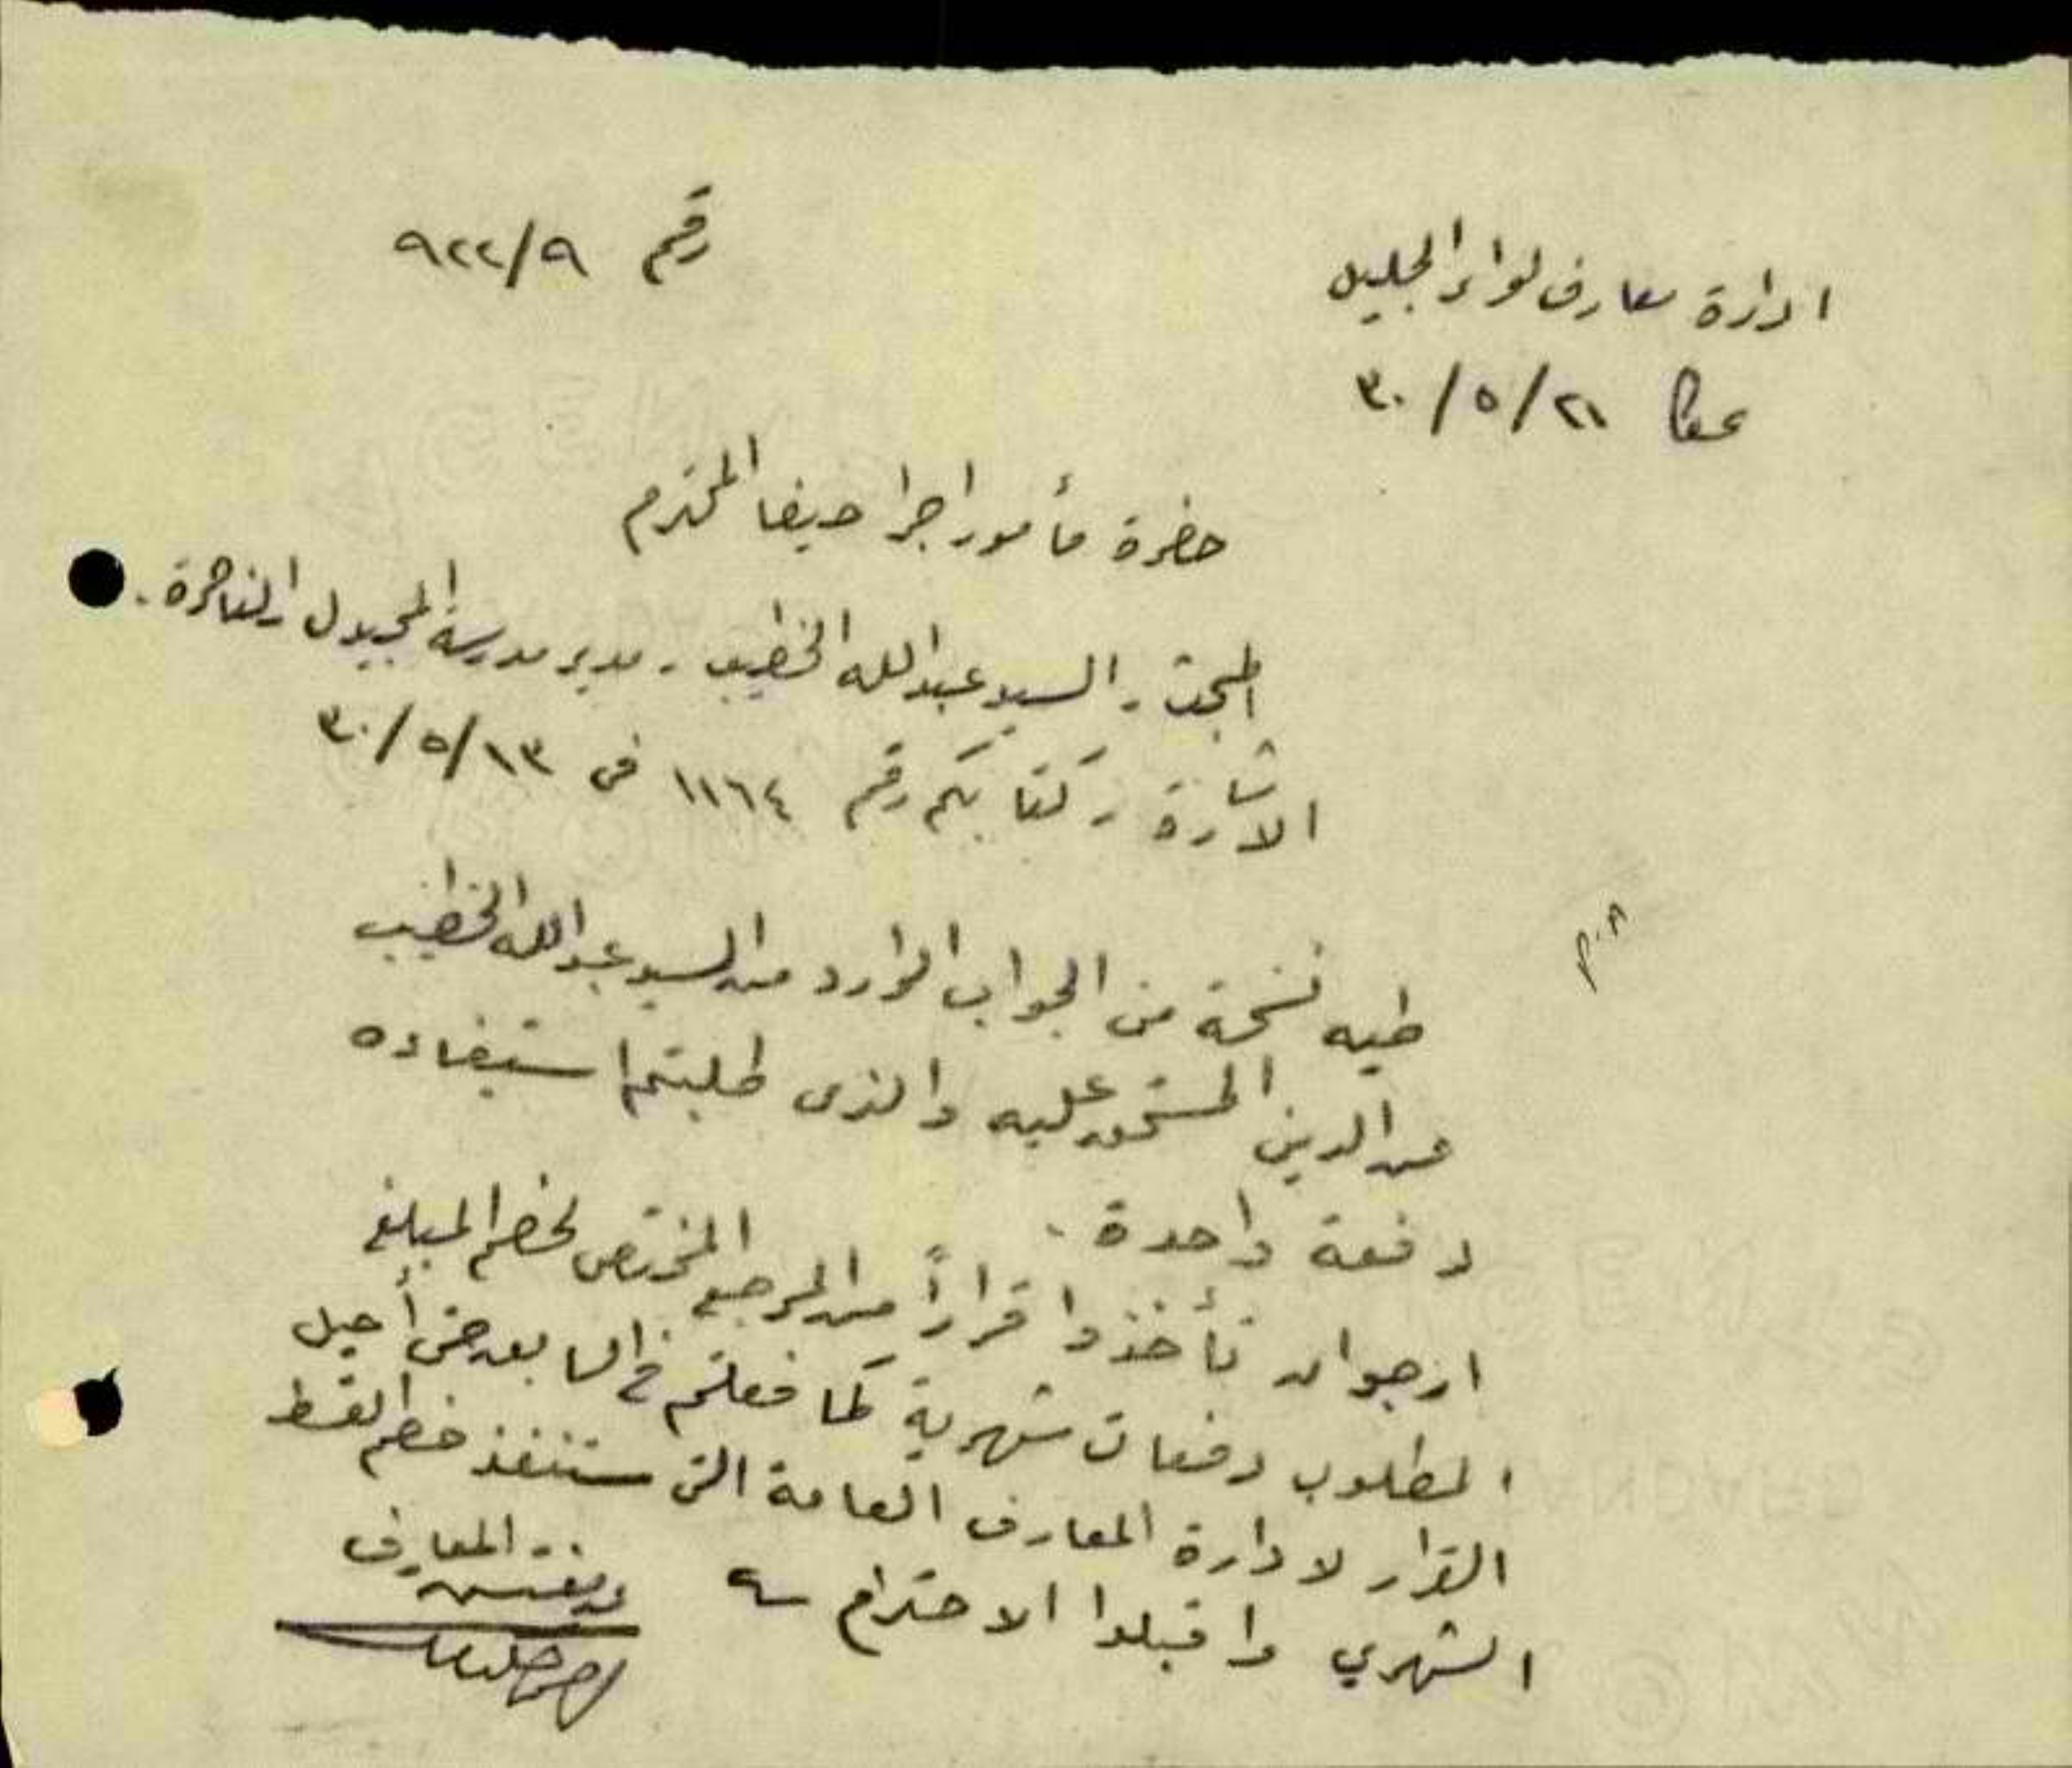 ادارة معارف لواء الجليل
رقم ٩/٩٢٢
عكا ٢١/٥/٣٠
حضرة مأمور اجرا حيفا المحترم
المبحث. السيد عبدالله الخطيب. مدير مدرسة المجيدل. الناصرة.
الاشارة. كتابكم رقم ١١٦٤ في ١٣/٥/٣٠
طيه نسخة من الجواب الوارد من السيد عبدالله الخطيب
عن الدين المستحق عليه والذي طلبتم استيفاده
دفعة واحدة.
ارجو ان تأخذوا قراراً من المرجع المختص لخصم المبلغ
المطلوب دفعات شهرية كما فعلتم في السابق حتى أحيل
القرار لادارة المعارف العامة التي ستنفذ خصم القسط
الشهري واقبلوا الاحترام
مفتش المعارف